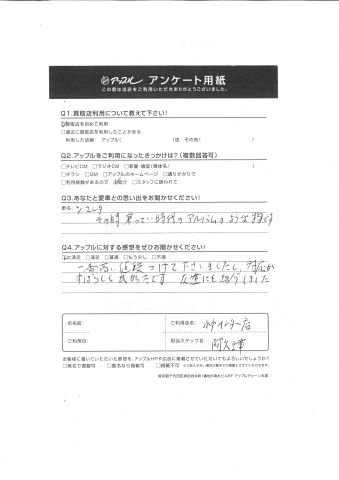 アップル アンケート用紙
この度は当店をご利用いただきありがとうございました。
Q1.買取店利用について教えて下さい!
☑買取店を初めて利用
□過去に買取店を利用したことがある
利用した店舗: アップル( )店 その他( )
Q2.アップルをご利用になったきっかけは?(複数回答可)
□テレビCM □ラジオCM □新聞・雑誌(媒体名/ )
□チラシ □DM □アップルのホームページ □通りがかりで
□利用経験があるので ☑紹介 □スタッフに誘われて
Q3.あなたと愛車との思い出をお聞かせください!
車名:シエンタ
その時乗っていた時代のアルバムのような物です
Q4.アップルに対する感想をぜひお聞かせください!
☑大満足 □満足 □普通 □もう少し □不満
一番高い値段つけて下さいましたし、対応が
すばらしく良かったです 友達にも紹介しました
お名前:
ご利用店名:
ご利用日:
担当スタッフ名:阿久津
お客様に書いていただいた感想を、アップルHPや広告に掲載させていただいてもよろしいでしょうか?
□実名で掲載可 □匿名なら掲載可 □掲載不可